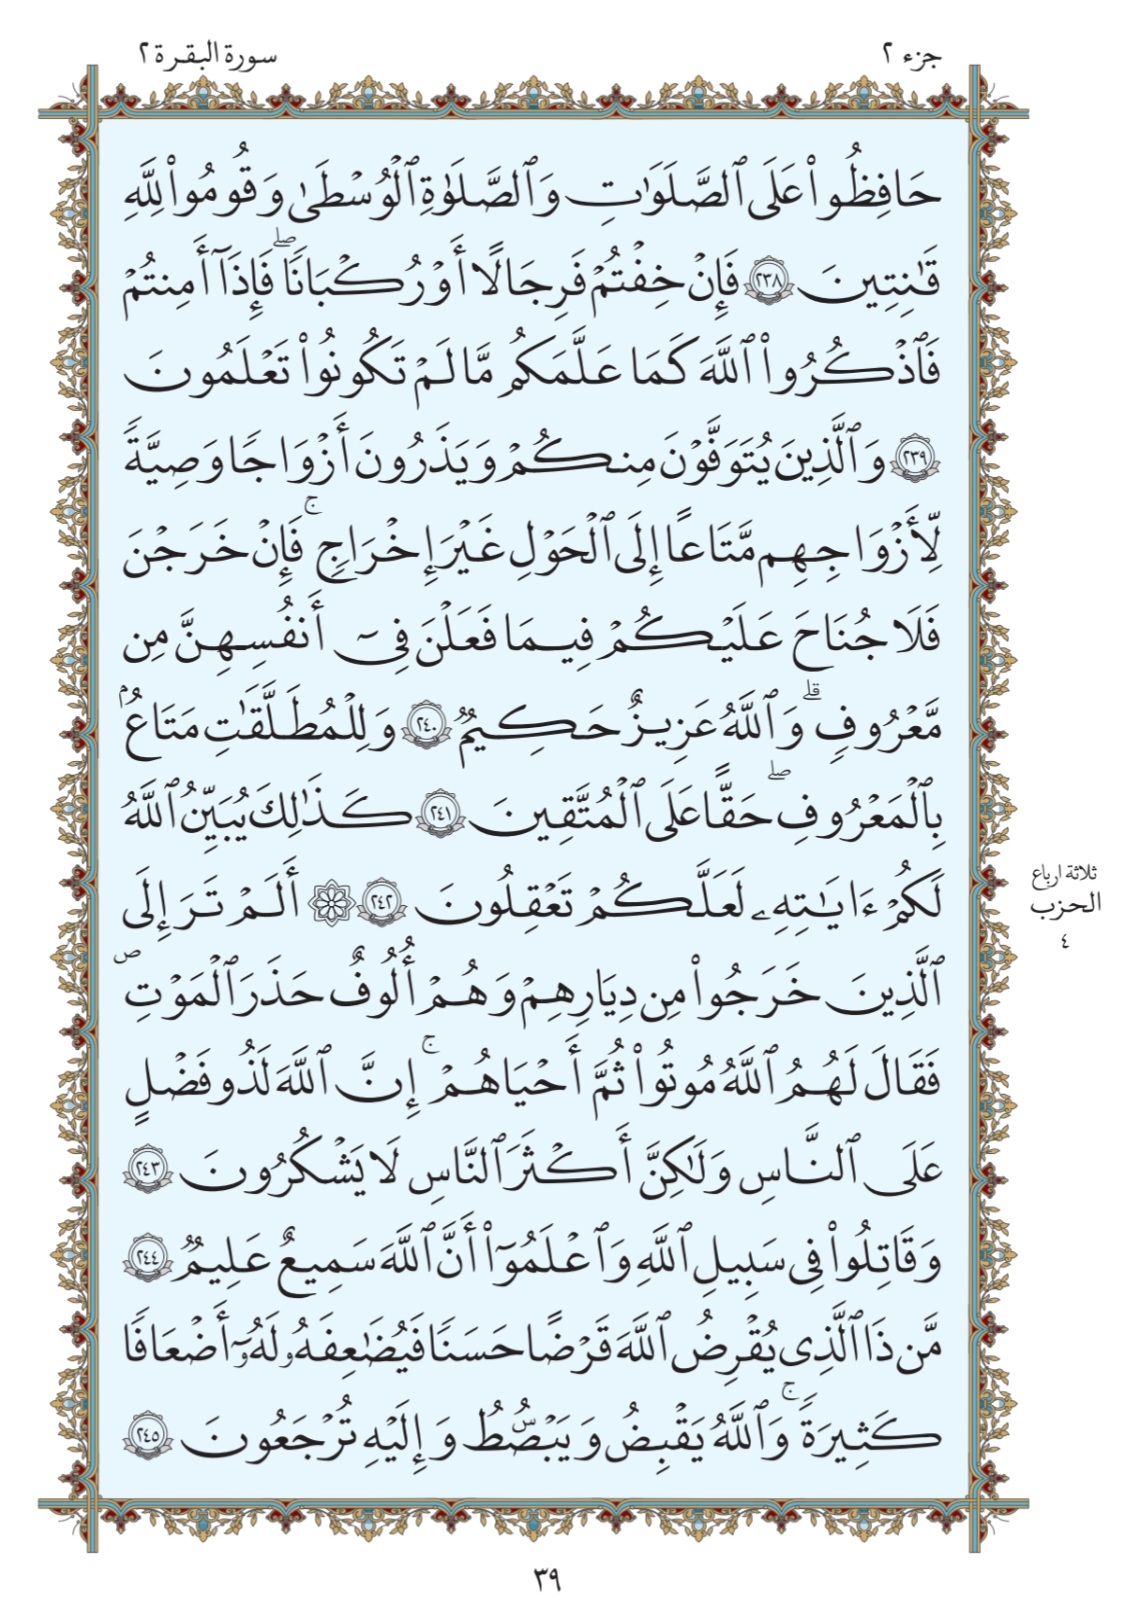 جزء ٢
سورة البقرة ٢
حَافِظُوا۟ عَلَى ٱلصَّلَوَٰتِ وَٱلصَّلَوٰةِ ٱلْوُسْطَىٰ وَقُومُوا۟ لِلَّهِ
قَٰنِتِينَ ٢٣٨ فَإِنْ خِفْتُمْ فَرِجَالًا أَوْ رُكْبَانًا ۖ فَإِذَآ أَمِنتُمْ
فَٱذْكُرُوا۟ ٱللَّهَ كَمَا عَلَّمَكُم مَّا لَمْ تَكُونُوا۟ تَعْلَمُونَ
٢٣٩ وَٱلَّذِينَ يُتَوَفَّوْنَ مِنكُمْ وَيَذَرُونَ أَزْوَاجًا وَصِيَّةً
لِّأَزْوَاجِهِم مَّتَاعًا إِلَى ٱلْحَوْلِ غَيْرَ إِخْرَاجٍ ۚ فَإِنْ خَرَجْنَ
فَلَا جُنَاحَ عَلَيْكُمْ فِيمَا فَعَلْنَ فِىٓ أَنفُسِهِنَّ مِن
مَّعْرُوفٍ ۗ وَٱللَّهُ عَزِيزٌ حَكِيمٌ ٢٤٠ وَلِلْمُطَلَّقَٰتِ مَتَٰعٌۢ
بِٱلْمَعْرُوفِ ۖ حَقًّا عَلَى ٱلْمُتَّقِينَ ٢٤١ كَذَٰلِكَ يُبَيِّنُ ٱللَّهُ
لَكُمْ ءَايَٰتِهِۦ لَعَلَّكُمْ تَعْقِلُونَ ٢٤٢ ۞ أَلَمْ تَرَ إِلَى
ٱلَّذِينَ خَرَجُوا۟ مِن دِيَٰرِهِمْ وَهُمْ أُلُوفٌ حَذَرَ ٱلْمَوْتِ ۖ
فَقَالَ لَهُمُ ٱللَّهُ مُوتُوا۟ ثُمَّ أَحْيَاهُمْ ۚ إِنَّ ٱللَّهَ لَذُو فَضْلٍ
عَلَى ٱلنَّاسِ وَلَٰكِنَّ أَكْثَرَ ٱلنَّاسِ لَا يَشْكُرُونَ ٢٤٣
وَقَاتِلُوا۟ فِى سَبِيلِ ٱللَّهِ وَٱعْلَمُوٓا۟ أَنَّ ٱللَّهَ سَمِيعٌ عَلِيمٌ ٢٤٤
مَّن ذَا ٱلَّذِى يُقْرِضُ ٱللَّهَ قَرْضًا حَسَنًا فَيُضَٰعِفَهُۥ لَهُۥٓ أَضْعَافًا
كَثِيرَةً ۚ وَٱللَّهُ يَقْبِضُ وَيَبْصُۜطُ وَإِلَيْهِ تُرْجَعُونَ ٢٤٥
ثلاثة ارباع
الحزب
٤
٣٩